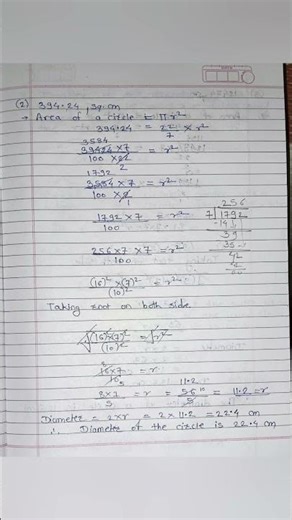 (2) 394.24 sq. cm
→ Area of a circle = πr²
394.24 = 22/7 × r²
3584
39424 × 7 / 100 × 22 = r²
2
1792
3584 × 7 / 100 × 2 = r²
1
1792 × 7 / 100 = r²
256 × 7 × 7 / 100 = r²
(16)² × (7)² / (10)² = r²
256
7 1792
-14
39
35
42
42
00
Taking root on both side
√(16)² × (7)² / (10)² = √r²
8
16 × 7 / 10 = r
5
8 × 7 / 5 = r = 56 / 5 = 11.2 = r
11.2
Diameter = 2 × r = 2 × 11.2 = 22.4 cm
∴ Diameter of the circle is 22.4 cm